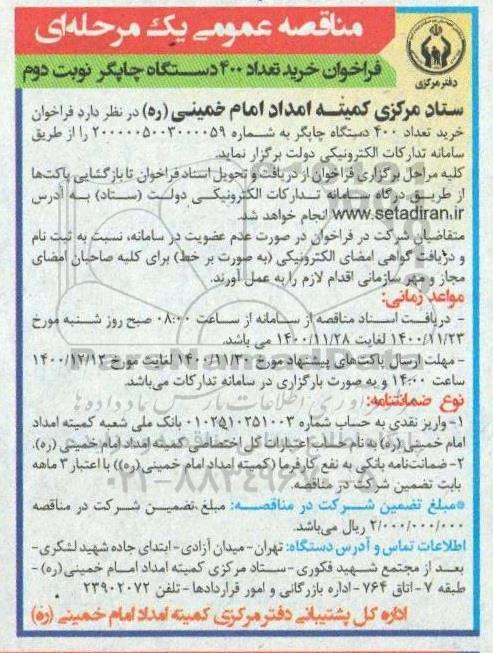 مناقصه عمومی یک مرحله‌ای
دفتر مرکزی
فراخوان خرید تعداد ۴۰۰ دستگاه چاپگر نوبت دوم
ستاد مرکزی کمیته امداد امام خمینی (ره) در نظر دارد فراخوان
خرید تعداد ۴۰۰ دستگاه چاپگر به شماره ۲۰۰۰۰۰۵۰۰۳۰۰۰۰۵۹ را از طریق
سامانه تدارکات الکترونیکی دولت برگزار نماید.
کلیه مراحل برگزاری فراخوان از دریافت و تحویل اسناد فراخوان تا بازگشایی پاکت‌ها
از طریق درگاه سامانه تدارکات الکترونیکی دولت (ستاد) به آدرس
www.setadiran.ir انجام خواهد شد.
متقاضیان شرکت در فراخوان در صورت عدم عضویت در سامانه، نسبت به ثبت نام
و دریافت گواهی امضای الکترونیکی (به صورت بر خط) برای کلیه صاحبان امضای
مجاز و مهر سازمانی اقدام لازم را به عمل آورند.
مواعد زمانی:
- دریافت اسناد مناقصه از سامانه از ساعت ۰۸:۰۰ صبح روز شنبه مورخ
۱۴۰۰/۱۱/۲۳ لغایت ۱۴۰۰/۱۱/۲۸ می باشد.
- مهلت ارسال پاکت‌های پیشنهاد مورخ ۱۴۰۰/۱۱/۳۰ لغایت مورخ ۱۴۰۰/۱۲/۱۲
ساعت ۱۴:۰۰ و به صورت بارگزاری در سامانه تدارکات می‌باشد.
نوع ضمانتنامه:
۱- واریز نقدی به حساب شماره ۰۱۰۲۵۱۰۲۵۱۰۰۳ بانک ملی شعبه کمیته امداد
امام خمینی (ره) به نام حساب اعتبارات کل اختصاصی کمیته امداد امام خمینی (ره).
۲- ضمانت‌نامه بانکی به نفع کارفرما (کمیته امداد امام خمینی (ره)) با اعتبار ۳ ماهه
بابت تضمین شرکت در مناقصه.
*مبلغ تضمین شرکت در مناقصه: مبلغ تضمین شرکت در مناقصه
۲/۰۰۰/۰۰۰/۰۰۰ ریال می‌باشد.
اطلاعات تماس و آدرس دستگاه: تهران- میدان آزادی- ابتدای جاده شهید لشکری-
بعد از مجتمع شهید فکوری- ستاد مرکزی کمیته امداد امام خمینی (ره)-
طبقه ۷- اتاق ۷۶۴- اداره بازرگانی و امور قراردادها- تلفن ۲۳۹۰۲۰۷۲
اداره کل پشتیبانی دفتر مرکزی کمیته امداد امام خمینی (ره)